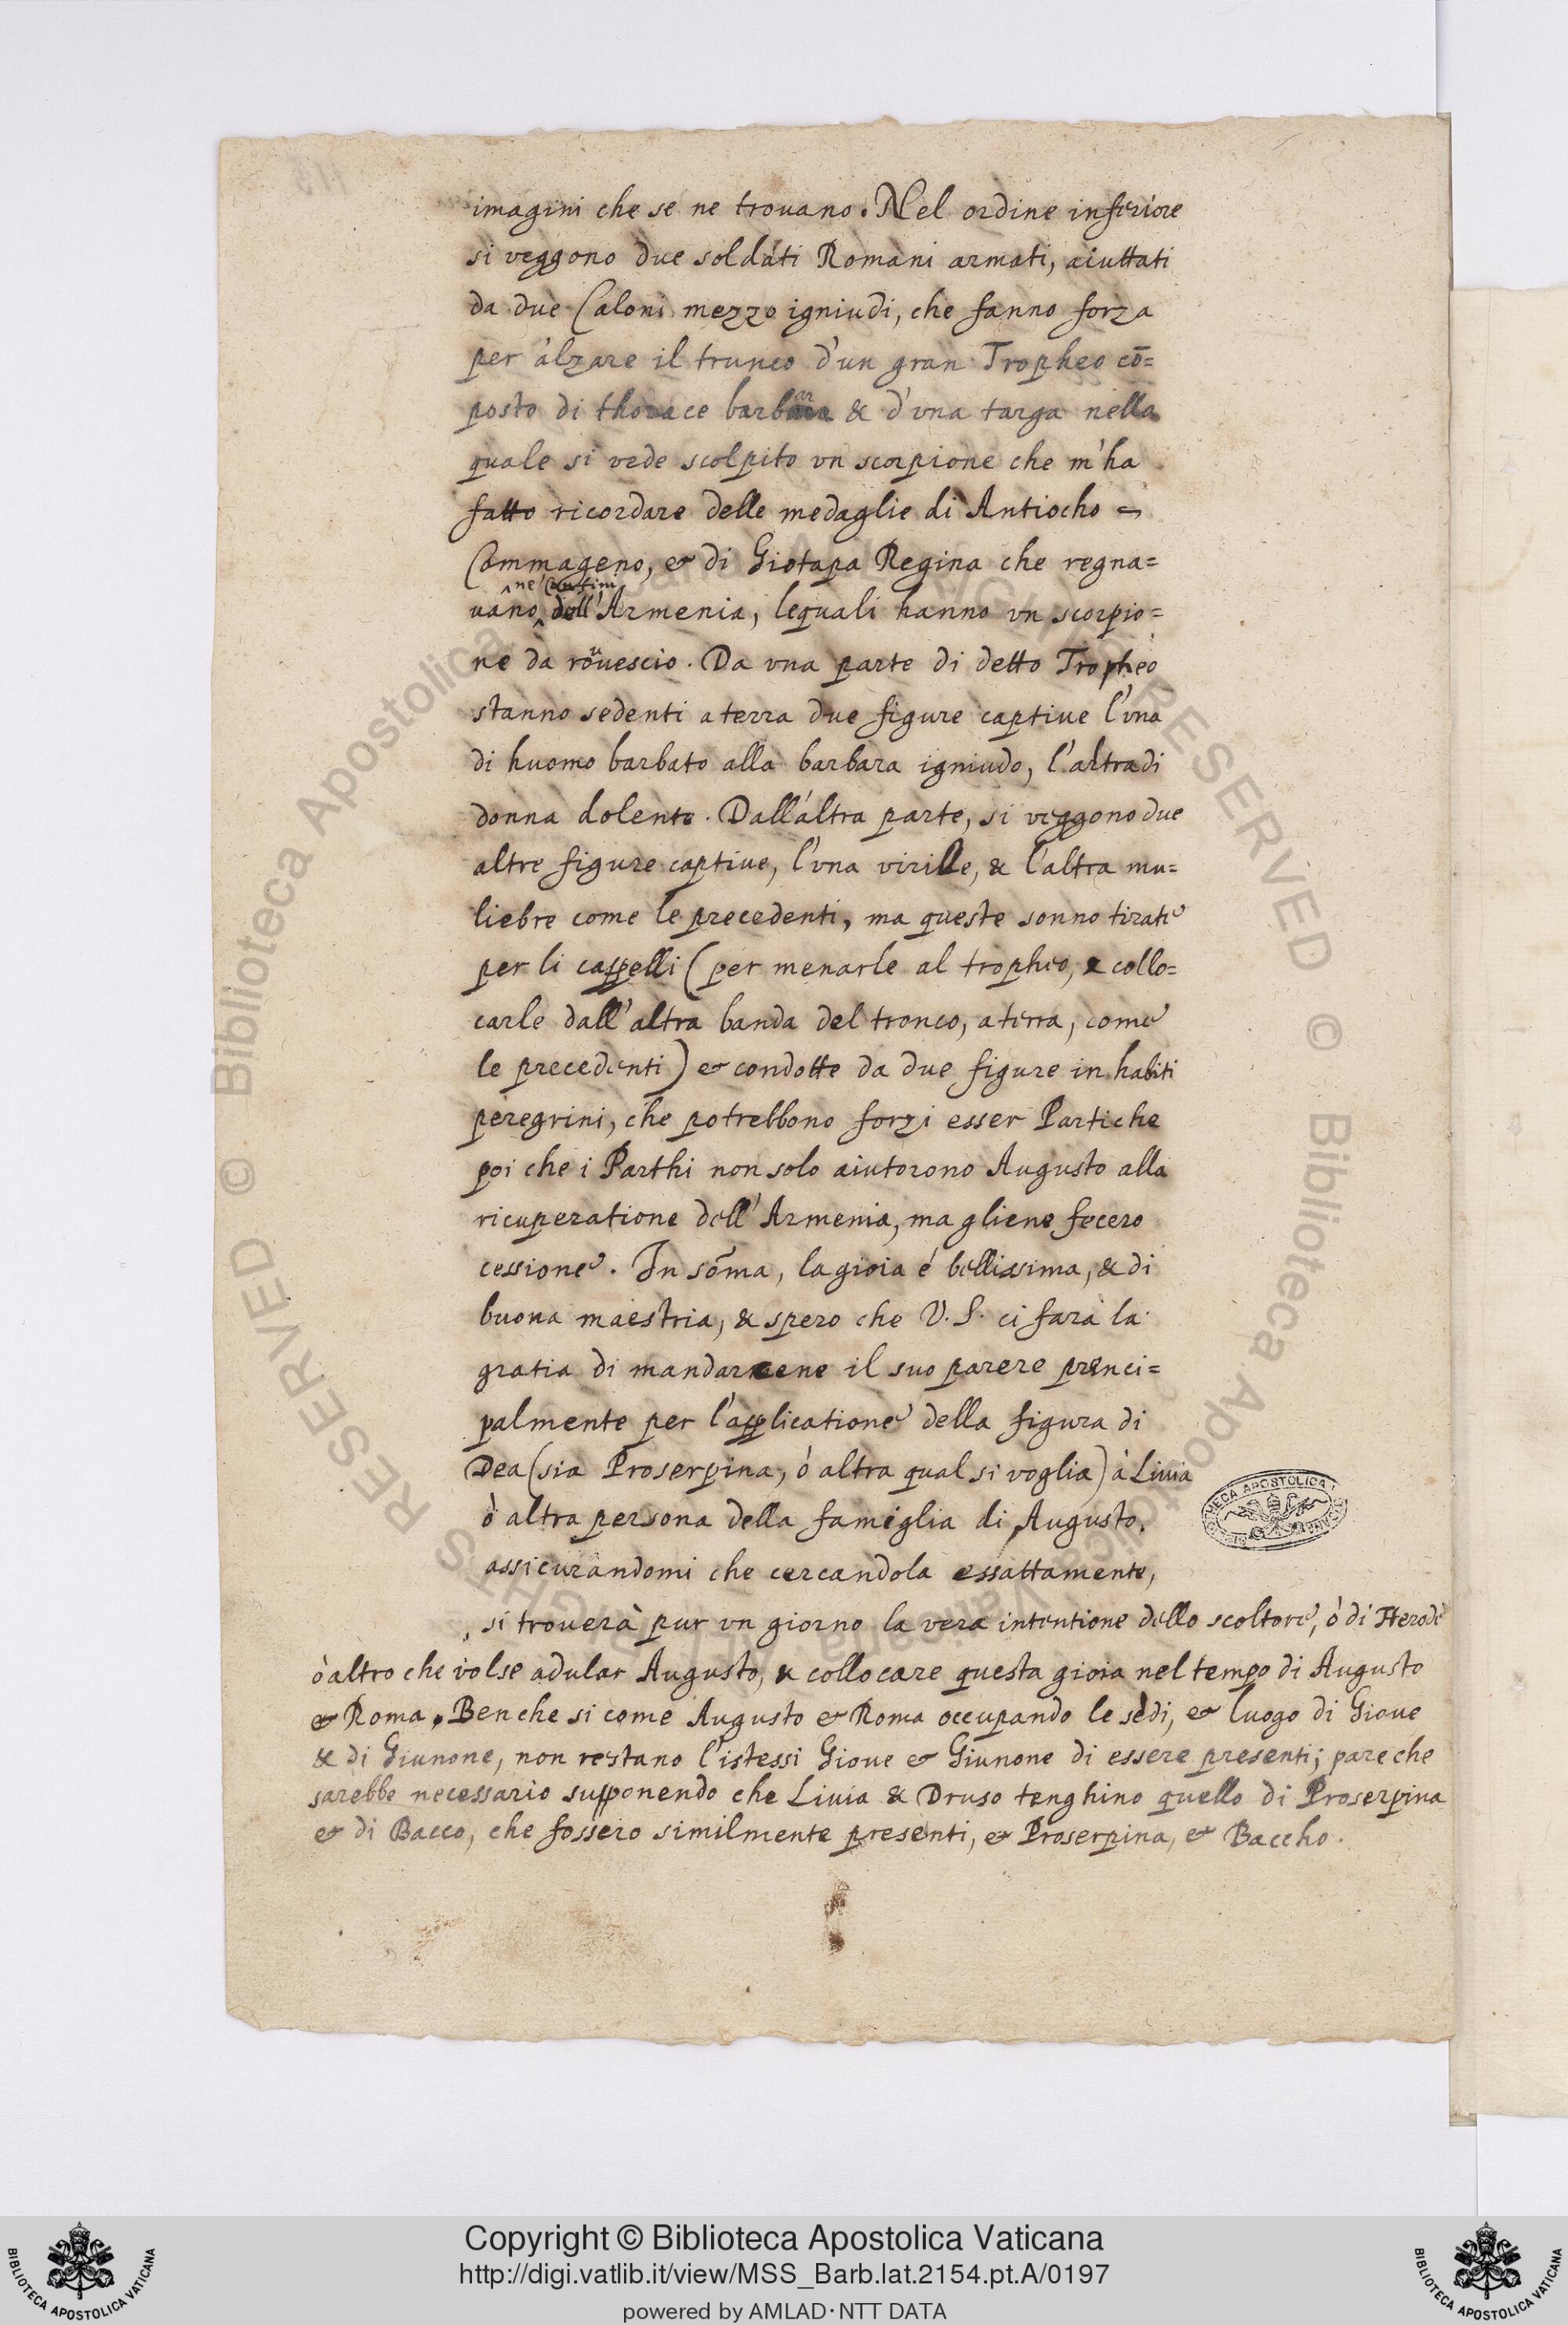 imagini che se ne trouano. Nel ordine inferiore
si veggono due soldati Romani armati, aiuttati
da due Caloni mezzo igniudi, che fanno forza
per alzare il trunco d'un gran Tropheo cō=
posto di thorace barbara & d'vna targa nella
quale si vede scolpito vn scorpione che m'ha
fatto ricordare delle medaglie di Antiocho
Commageno, & di Giotapa Regina che regna=
ne' Confini
uano dell'Armenia, lequali hanno vn scorpio=
ne da rouescio. Da vna parte di detto Tropheo
stanno sedenti a terra due figure captiue l'vna
di huomo barbato alla barbara igniudo, l'altra di
donna dolente. Dall'altra parte, si veggono due
altre figure captiue, l'vna virille, & l'altra mu=
liebre come le precedenti, ma queste sonno tirate
per li cappelli (per menarle al tropheo, & collo=
carle dall'altra banda del tronco, a terra, come
le precedenti) & condotte da due figure in habiti
peregrini, che potrebbono forzi esser Partiche
poi che i Parthi non solo aiutorono Augusto alla
ricuperatione dell'Armenia, ma gliene fecero
cessione. In som̄a, la gioia é bellissima, & di
buona maestria, & spero che V. S. ci fara la
gratia di mandarcene il suo parere princi=
palmente per l'applicatione della figura di
Dea (sia Proserpina, ò altra qual si voglia) à Liuia
ò altra persona della fameglia di Augusto,
assicurandomi che cercandola essattamente,
si trouerà pur vn giorno la vera intentione dello scoltore, ò di Herode
ò altro che volse adular Augusto, & collocare questa gioia nel tempo di Augusto
& Roma. Benche si come Augusto & Roma occupando le sedi, & luogo di Gioue
& di Giunone, non restano l'istessi Gioue & Giunone di essere presenti; pare che
sarebbe necessario supponendo che Liuia & Druso tenghino quello di Proserpina
& di Bacco, che fossero similmente presenti, & Proserpina, & Baccho.
© Biblioteca Apostolica Vaticana ALL RIGHTS RESERVED
Copyright © Biblioteca Apostolica Vaticana
http://digi.vatlib.it/view/MSS_Barb.lat.2154.pt.A/0197
powered by AMLAD·NTT DATA
BIBLIOTECA APOSTOLICA VATICANA
BIBLIOTECA APOSTOLICA VATICANA